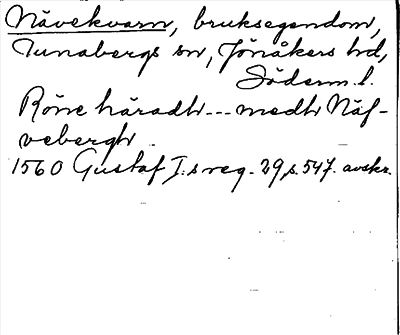 Nävekvarn, bruksegendom,
Tunabergs sn, Jönåkers hd,
Söderm. l.
Röne häradh --- medh Näf-
vebergh.
1560 Gustaf I:s reg. 29, s. 547. avskr.